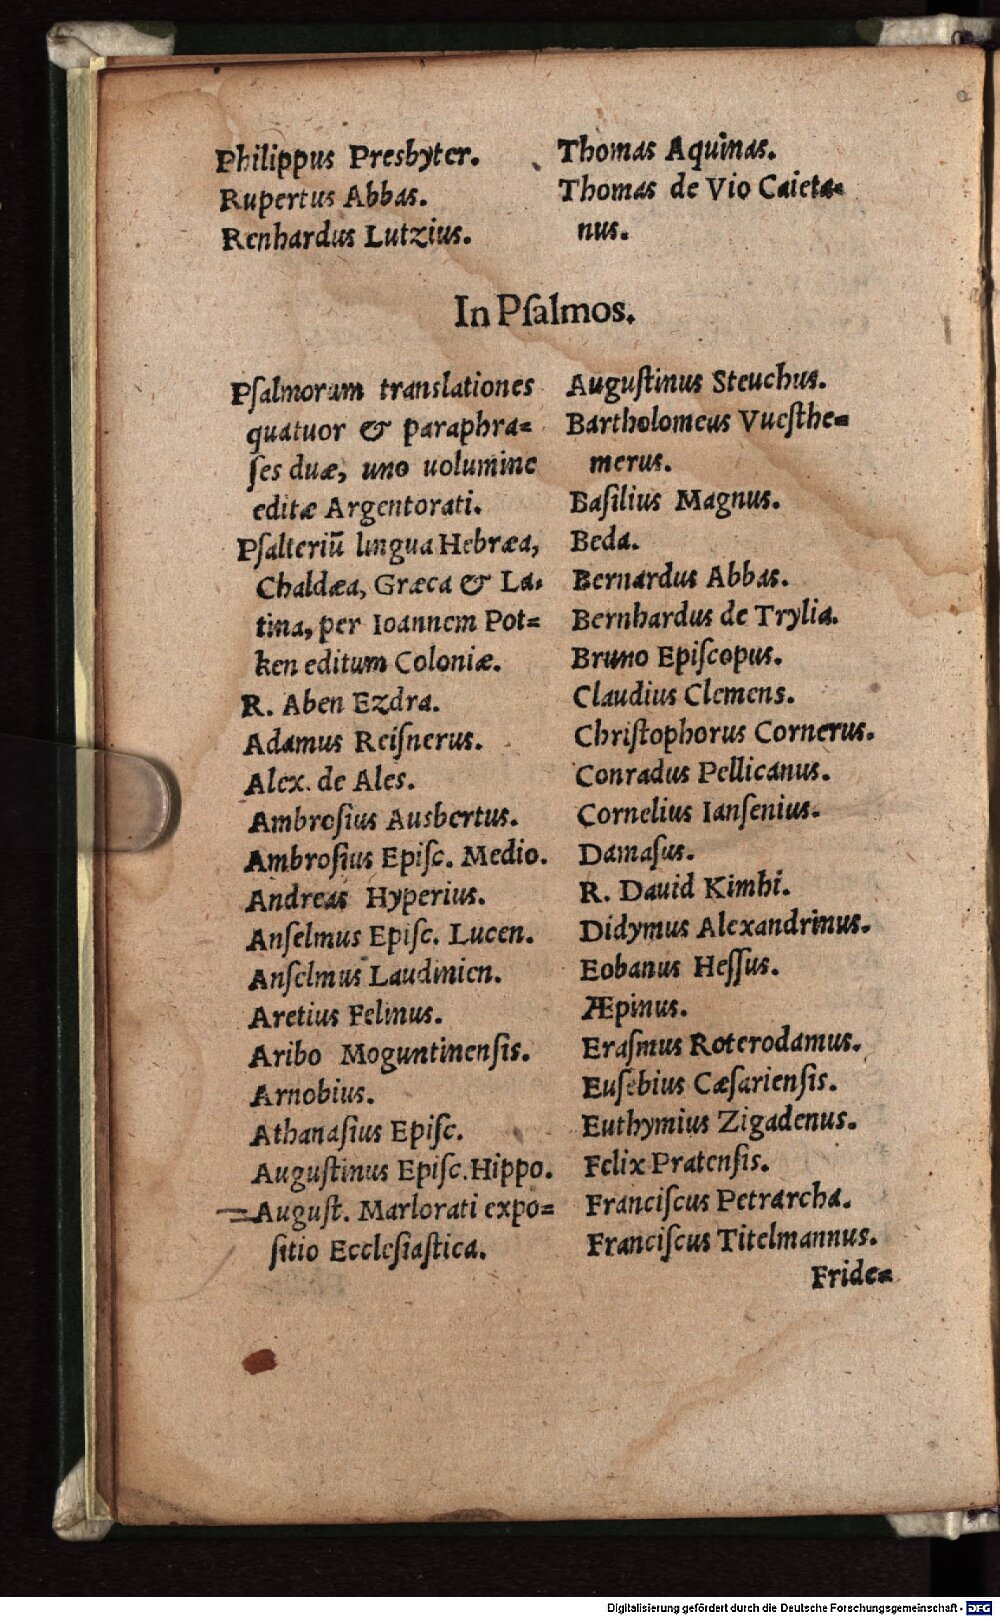 Philippus Presbyter.
Rupertus Abbas.
Renhardus Lutzius.
Thomas Aquinas.
Thomas de Vio Caieta=
nus.
In Pſalmos.
Pſalmorum translationes
quatuor & paraphra=
ſes duæ, uno uolumine
editæ Argentorati.
Pſalteriũ lingua Hebræa,
Chaldæa, Græca & La=
tina, per Ioannem Pot=
ken editum Coloniæ.
R. Aben Ezdra.
Adamus Reiſnerus.
Alex. de Ales.
Ambroſius Ausbertus.
Ambroſius Epiſc. Medio.
Andreas Hyperius.
Anſelmus Epiſc. Lucen.
Anſelmus Laudinien.
Aretius Felinus.
Aribo Moguntinenſis.
Arnobius.
Athanaſius Epiſc.
Auguſtinus Epiſc. Hippo.
Auguſt. Marlorati expo=
ſitio Eccleſiaſtica.
Auguſtinus Steuchus.
Bartholomeus Vueſthe=
merus.
Baſilius Magnus.
Beda.
Bernardus Abbas.
Bernhardus de Trylia.
Bruno Epiſcopus.
Claudius Clemens.
Chriſtophorus Cornerus.
Conradus Pellicanus.
Cornelius Ianſenius.
Damaſus.
R. Dauid Kimhi.
Didymus Alexandrinus.
Eobanus Heſſus.
Æpinus.
Eraſmus Roterodamus.
Euſebius Cæſarienſis.
Euthymius Zigadenus.
Felix Pratenſis.
Franciſcus Petrarcha.
Franciſcus Titelmannus.
Fride=
Digitalisierung gefördert durch die Deutsche Forschungsgemeinschaft - DFG